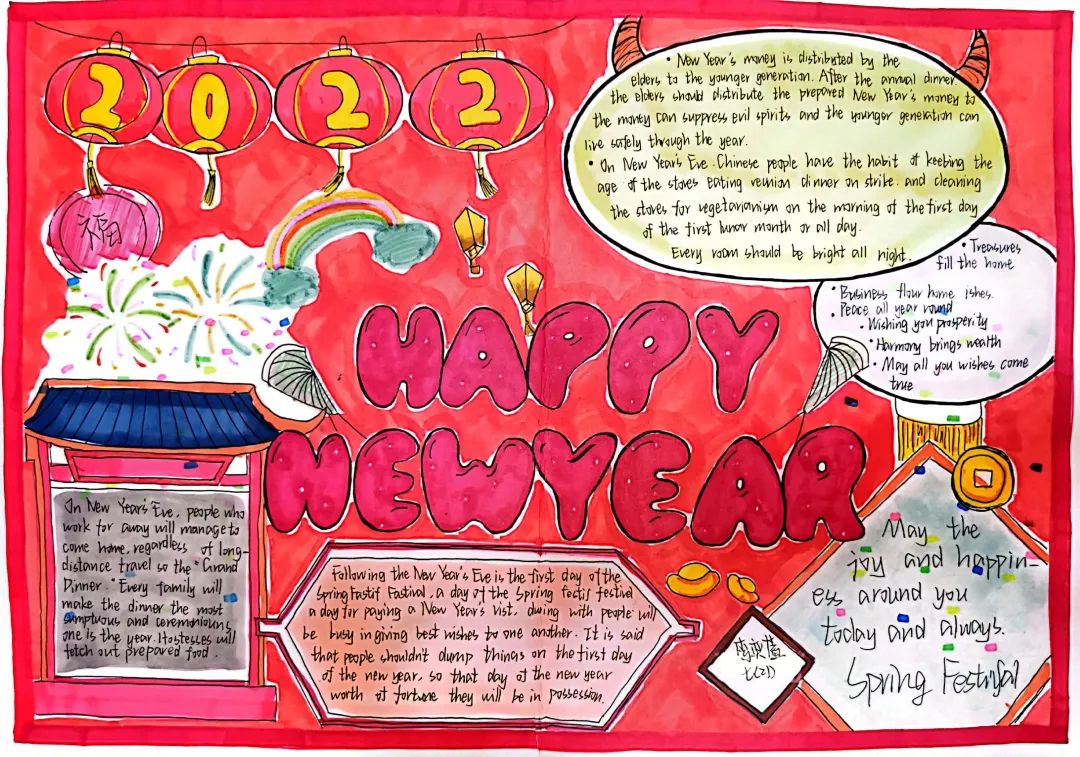 2022
福
• New Year's money is distributed by the
elders to the younger generation. After the annual dinner
the elders should distribute the prepared New Year's money to
the money can suppress evil spirits and the younger generation can
live safely through the year.
• On New Year's Eve. Chinese people have the habit of keebing the
age of the stoves eating reunion dinner on strike. and cleaning
the stoves for vegetarianism on the morning of the first day
of the first lunor month or all day.
Every room should be bright all night.
• Treasures
fill the home
• Business flour home ishes.
Peace all year round
• Wishing you prosperity
• Harmony brings wealth
• May all you wishes come
true
HAPPY
NEWYEAR
On New Year's Eve, people who
work for away will manage to
come home, regardless of long-
distance travel so the "Grand
Dinner." Every family will
make the dinner the most
sumptuous and ceremonious,
one is the year. Hostesses will
fetch out prepared food.
Following the New Year's Eve is the first day of the
Spring Fastif Festival, a day of the Spring festif festival
a day for paying a New Year's vist. dwing with people will
be busy in giving best wishes to one another. It is said
that people shouldn't dump things on the first day
of the new year. so that day of the new year
worth of fortune they will be in possession.
May the
joy and happin-
ess around you
today and always.
Spring Festifal
七(21)